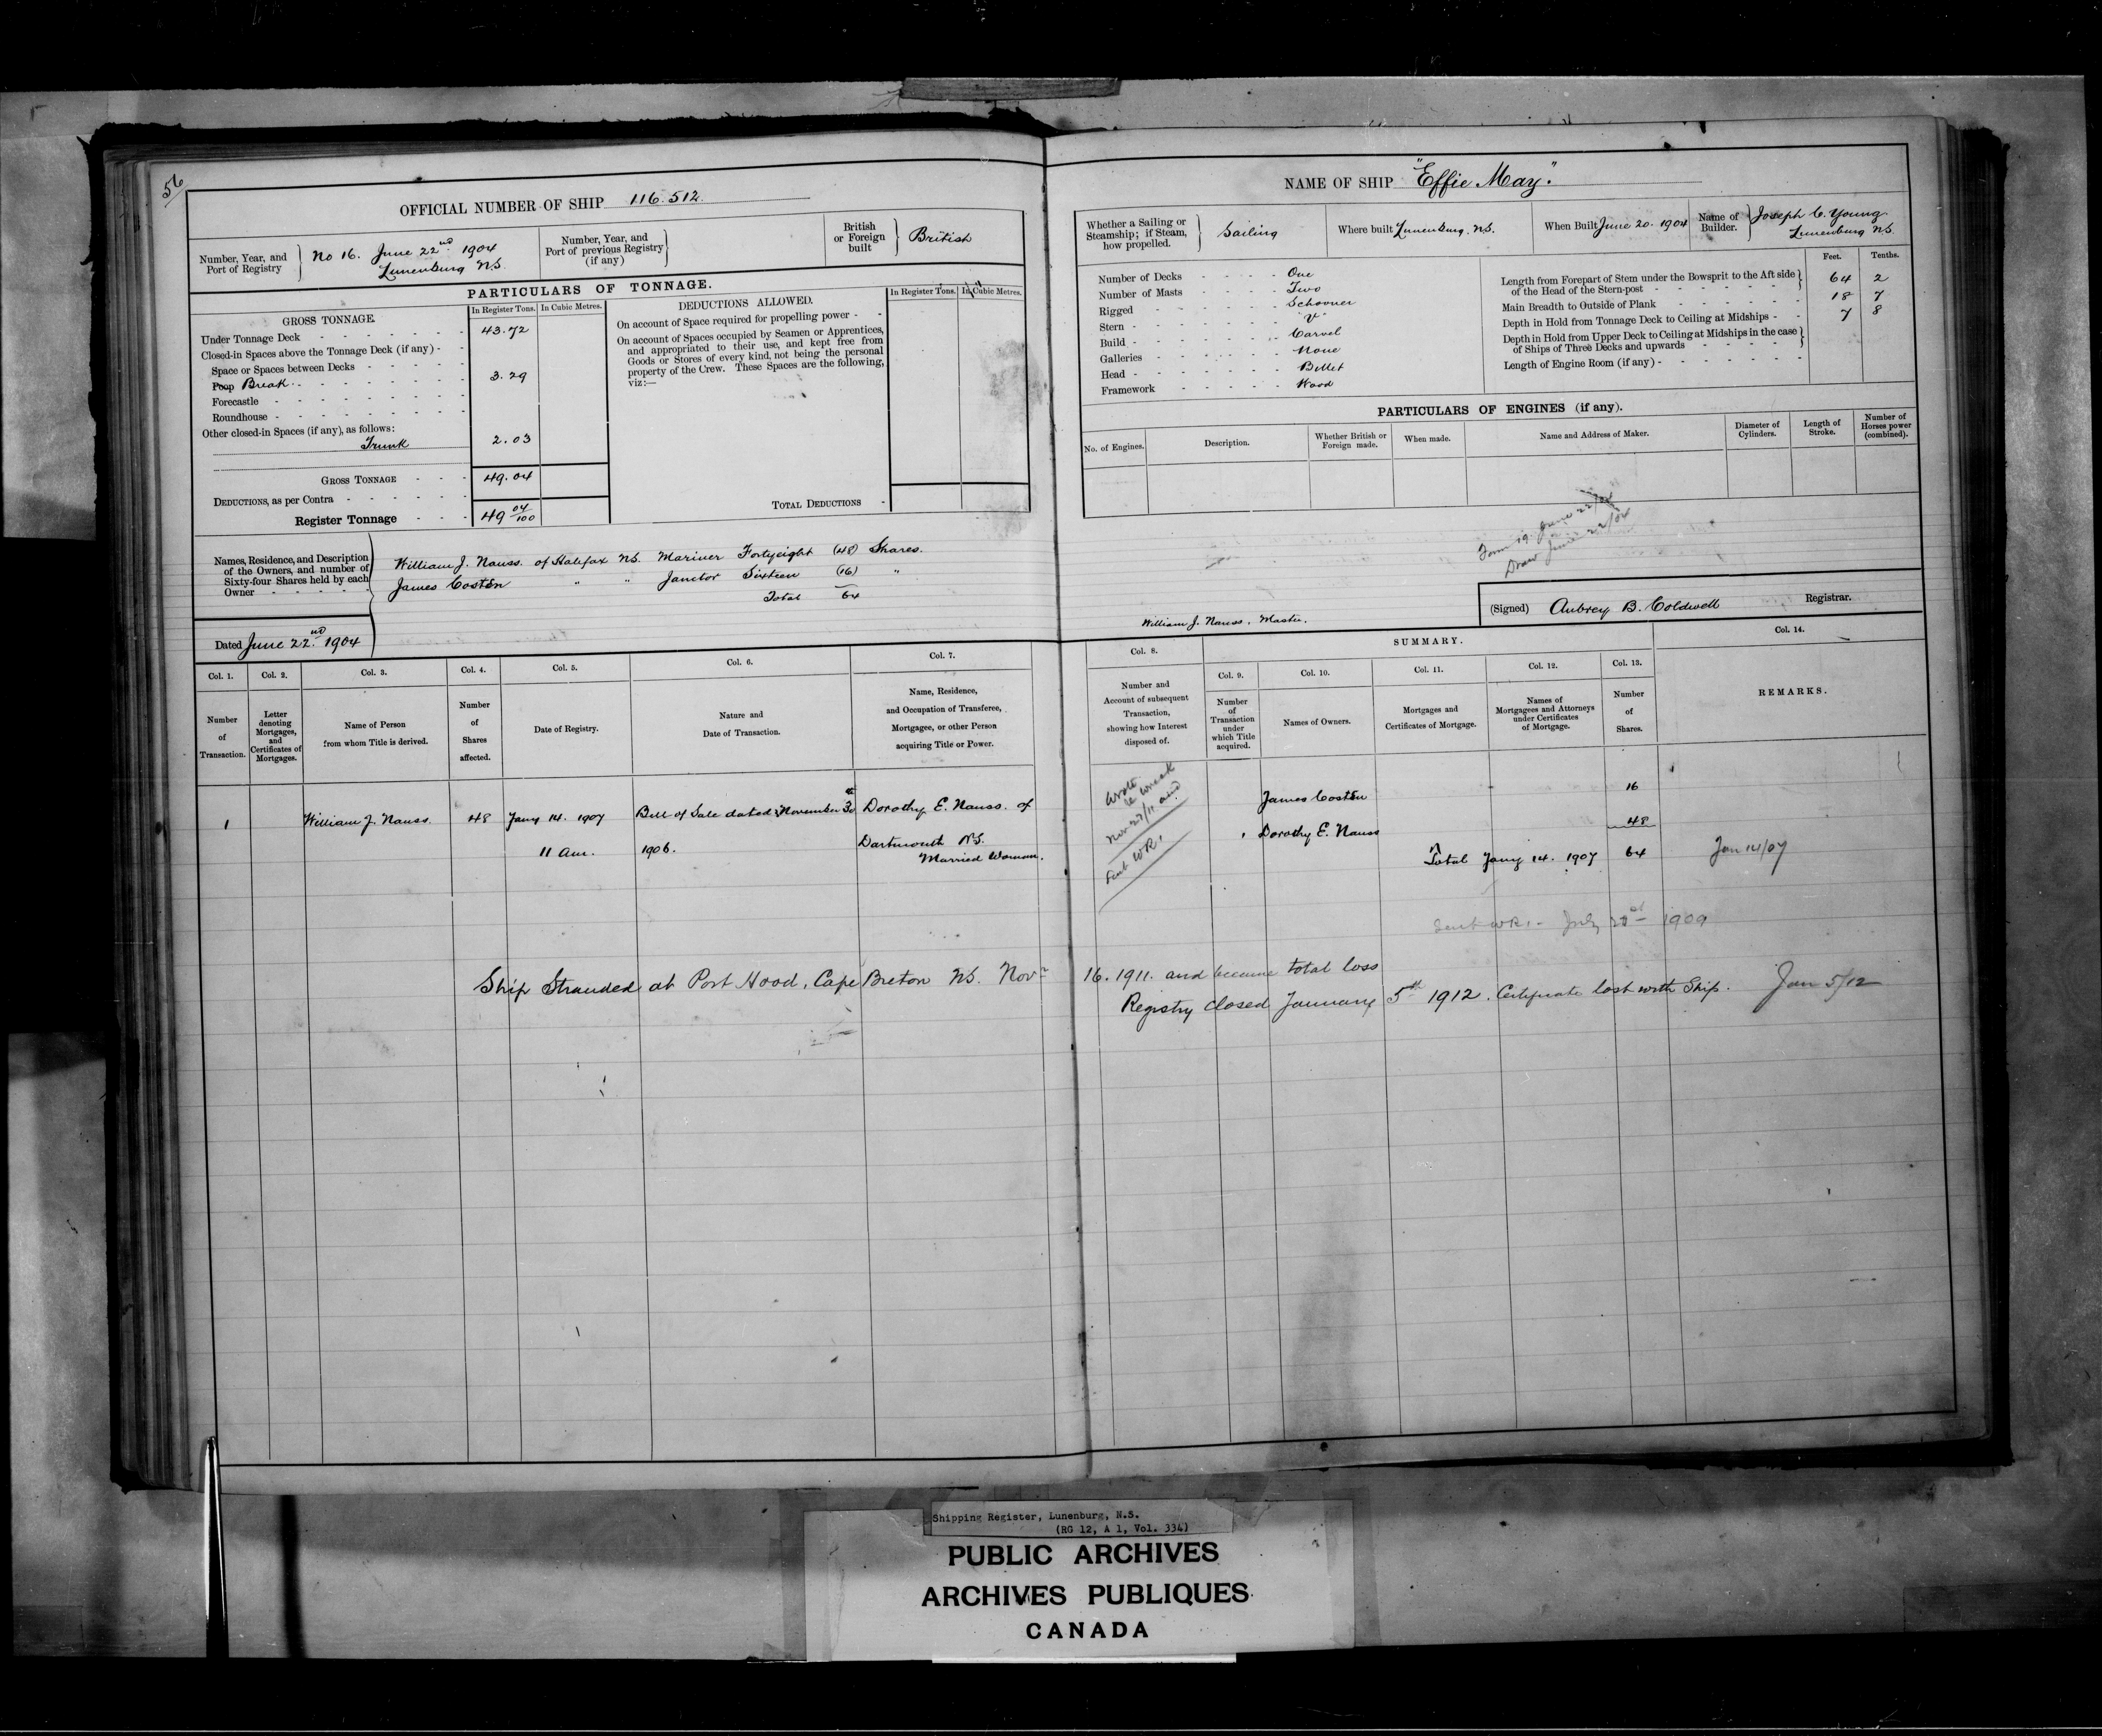 56
OFFICIAL NUMBER OF SHIP 116.512.
Number, Year, and Port of Registry
No 16. June 22nd 1904
Lunenburg N.S.
Number, Year, and Port of previous Registry (if any)
British or Foreign built
British
PARTICULARS OF TONNAGE.
GROSS TONNAGE.
In Register Tons. In Cubic Metres.
Under Tonnage Deck - 43.72
Closed-in Spaces above the Tonnage Deck (if any) -
Space or Spaces between Decks -
Poop Break - 3.29
Forecastle -
Roundhouse -
Other closed-in Spaces (if any), as follows:
Trunk 2.03
GROSS TONNAGE - 49.04
DEDUCTIONS, as per Contra -
Register Tonnage - 49 04/100
DEDUCTIONS ALLOWED.
In Register Tons. In Cubic Metres.
On account of Space required for propelling power -
On account of Spaces occupied by Seamen or Apprentices,
and appropriated to their use, and kept free from
Goods or Stores of every kind, not being the personal
property of the Crew. These Spaces are the following,
viz:—
TOTAL DEDUCTIONS -
Names, Residence, and Description
of the Owners, and number of
Sixty-four Shares held by each
Owner -
William J. Nauss. of Halifax N.S. Mariner Fortyeight (48) Shares.
James Costen " " Janitor Sixteen (16) "
Total 64
Dated June 22nd. 1904
NAME OF SHIP "Effie May."
Whether a Sailing or
Steamship; if Steam,
how propelled.
Sailing
Where built Lunenburg. N.S.
When Built June 20. 1904
Name of Builder.
Joseph C. Young
Lunenburg N.S.
Number of Decks - One
Number of Masts - Two
Rigged - Schooner
Stern - "V"
Build - Carvel
Galleries - None
Head - Billet
Framework - Wood
Feet. Tenths.
Length from Forepart of Stem under the Bowsprit to the Aft side
of the Head of the Stern-post - 64 2
Main Breadth to Outside of Plank - 18 7
Depth in Hold from Tonnage Deck to Ceiling at Midships - 7 8
Depth in Hold from Upper Deck to Ceiling at Midships in the case
of Ships of Three Decks and upwards -
Length of Engine Room (if any) -
PARTICULARS OF ENGINES (if any).
No. of Engines.
Description.
Whether British or Foreign made.
When made.
Name and Address of Maker.
Diameter of Cylinders.
Length of Stroke.
Number of Horses power (combined).
Form 19. June 22/04
Draw June 22/04
William J. Nauss, Master.
(Signed) Aubrey B. Coldwell Registrar.
Col. 1. Col. 2. Col. 3. Col. 4. Col. 5. Col. 6. Col. 7.
Number of Transaction.
Letter denoting Mortgages, and Certificates of Mortgages.
Name of Person from whom Title is derived.
Number of Shares affected.
Date of Registry.
Nature and Date of Transaction.
Name, Residence, and Occupation of Transferee, Mortgagee, or other Person acquiring Title or Power.
Col. 8.
SUMMARY.
Col. 9. Col. 10. Col. 11. Col. 12. Col. 13. Col. 14.
Number and Account of subsequent Transaction, showing how Interest disposed of.
Number of Transaction under which Title acquired.
Names of Owners.
Mortgages and Certificates of Mortgage.
Names of Mortgagees and Attorneys under Certificates of Mortgage.
Number of Shares.
REMARKS.
1 William J. Nauss. 48 Jany 14. 1907 Bill of Sale dated November 30th Dorothy E. Nauss. of
11 am. 1906. Dartmouth N.S.
Married Woman.
Wrote
re wreck
Nov 27/11 and
Sent WR1
James Costen 16
1 Dorothy E. Nauss 48
Total Jany 14. 1907 64 Jan 14/07
Sent WR1 - July 1909
Ship Stranded at Port Hood, Cape Breton N.S. Novr 16. 1911. and became total loss
Registry Closed January 5th 1912. Certificate lost with Ship. Jan 5/12
Shipping Register, Lunenburg, N.S.
(RG 12, A 1, Vol. 334)
PUBLIC ARCHIVES
ARCHIVES PUBLIQUES
CANADA